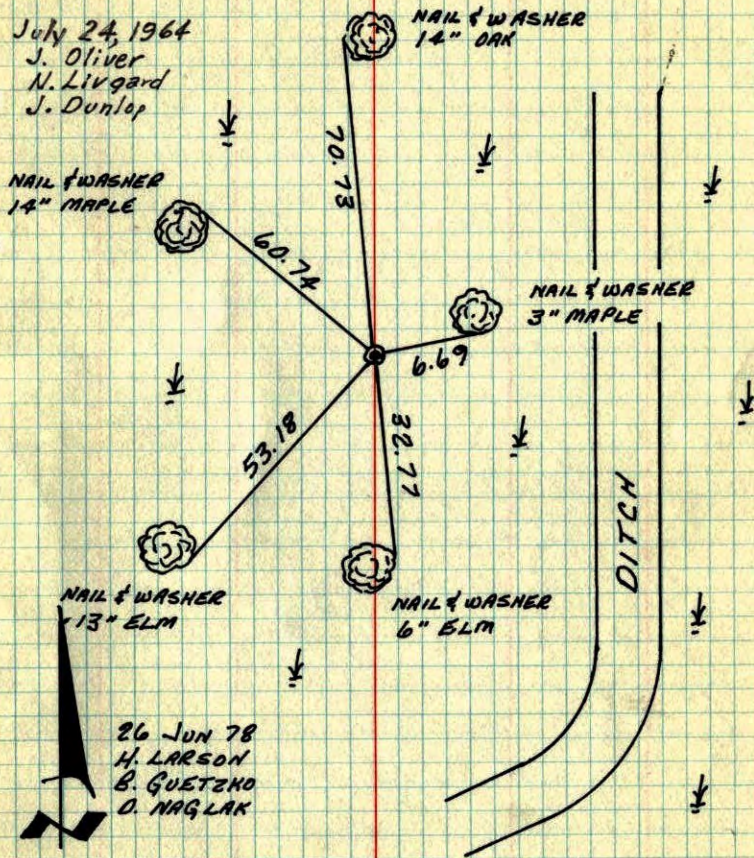 July 24, 1964
J. Oliver
N. Livgard
J. Dunlop
NAIL & WASHER
14" OAK
70.73
NAIL & WASHER
14" MAPLE
60.74
NAIL & WASHER
3" MAPLE
6.69
53.18
32.77
DITCH
NAIL & WASHER
13" ELM
NAIL & WASHER
6" ELM
26 JUN 78
H. LARSON
B. GUETZKO
D. NAGLAK
N